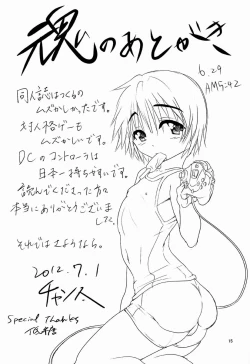 魂のあとがき
6.29
AM9:42
同人誌はつくるの
ムズかしかったです。
対人格ゲーも
ムズかしいです。
DCのコントローラは
日本一持ちやすいです。
読んでくださった方々
本当にありがとうございま
した。
それではさようなら。
2012.7.1
チャンス
Special Thanks